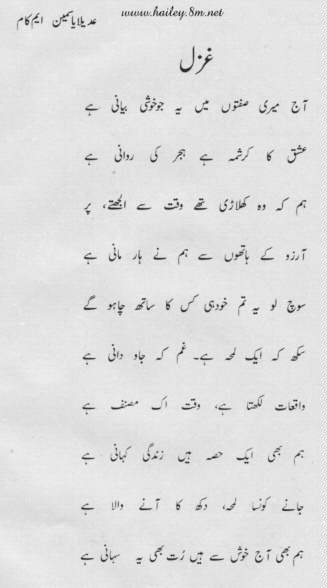 www.hailey.8m.net
عدیلایاسمین ایم کام
غزل
آج میری صفتوں میں یہ جو خوشی بیانی ہے
عشق کا کرشمہ ہے ہجر کی روانی ہے
ہم کہ وہ کھلاڑی تھے وقت سے الجھتے، پر
آرزو کے ہاتھوں سے ہم نے ہار مانی ہے
سوچ لو یہ تم خود ہی کس کا ساتھ چاہو گے
سکھ کہ ایک لمحہ ہے۔ غم کہ جاو دانی ہے
واقعات لکھتا ہے، وقت اک مصنف ہے
ہم بھی ایک حصہ ہیں زندگی کہانی ہے
جانے کونسا لمحہ، دکھ کا آنے والا ہے
ہم بھی آج خوش سے ہیں رُت بھی یہ سہانی ہے